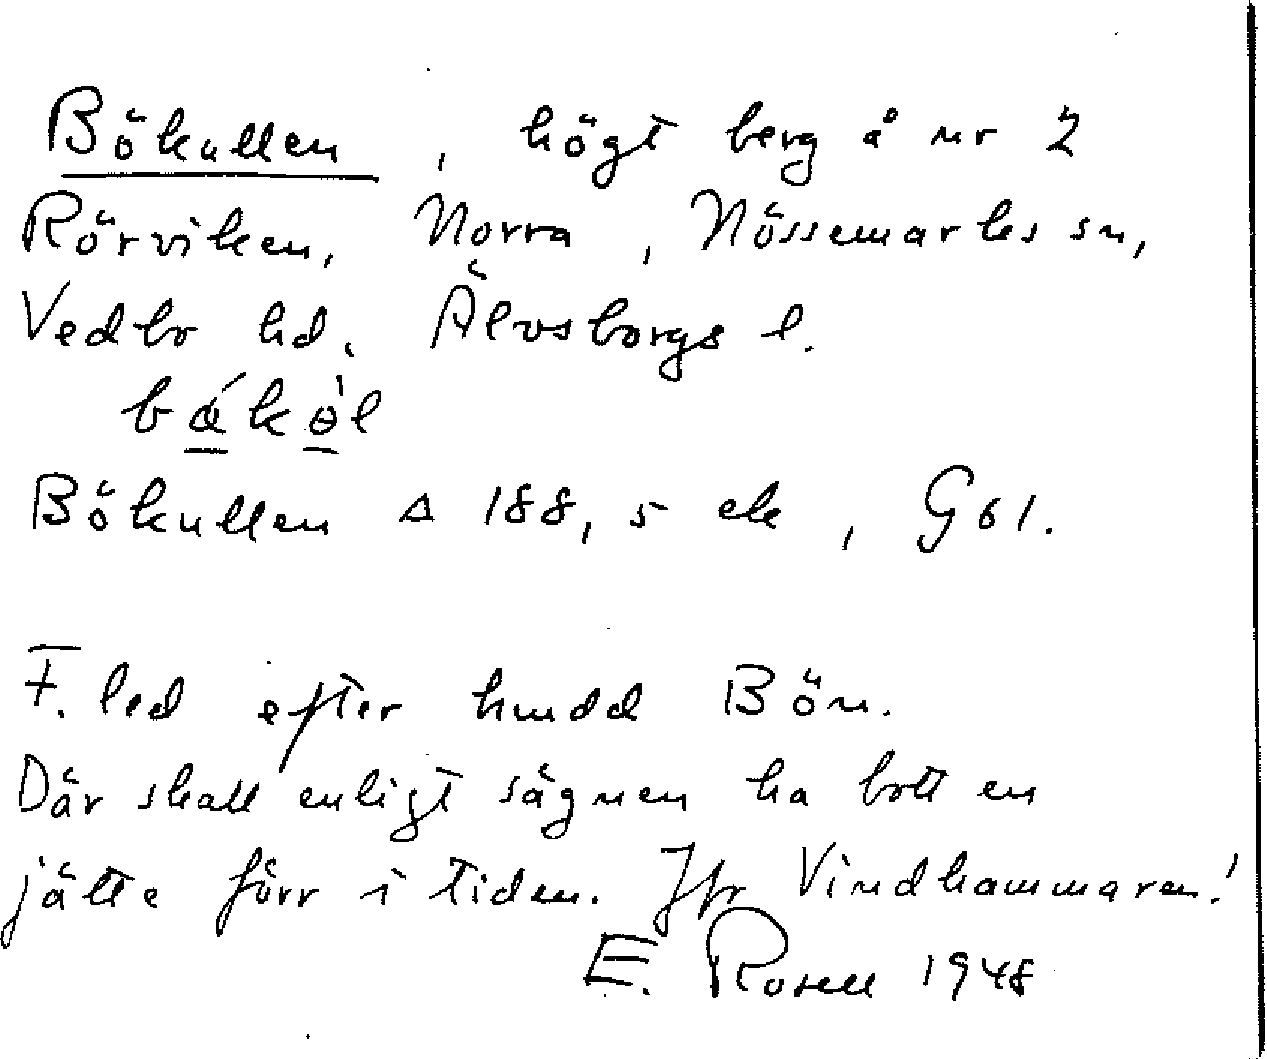 Bökullen, högt berg å nr 2
Rörviken, Norra, Nössemarks sn,
Vedbo hd. Älvsborgs l.
Bökullen Δ 188,5 ek, G61.
F. led efter hmdd Bön.
Där skall enligt sägnen ha bott en
jätte förr i tiden. Jfr Vindhammaren!
E. Rosell 1948